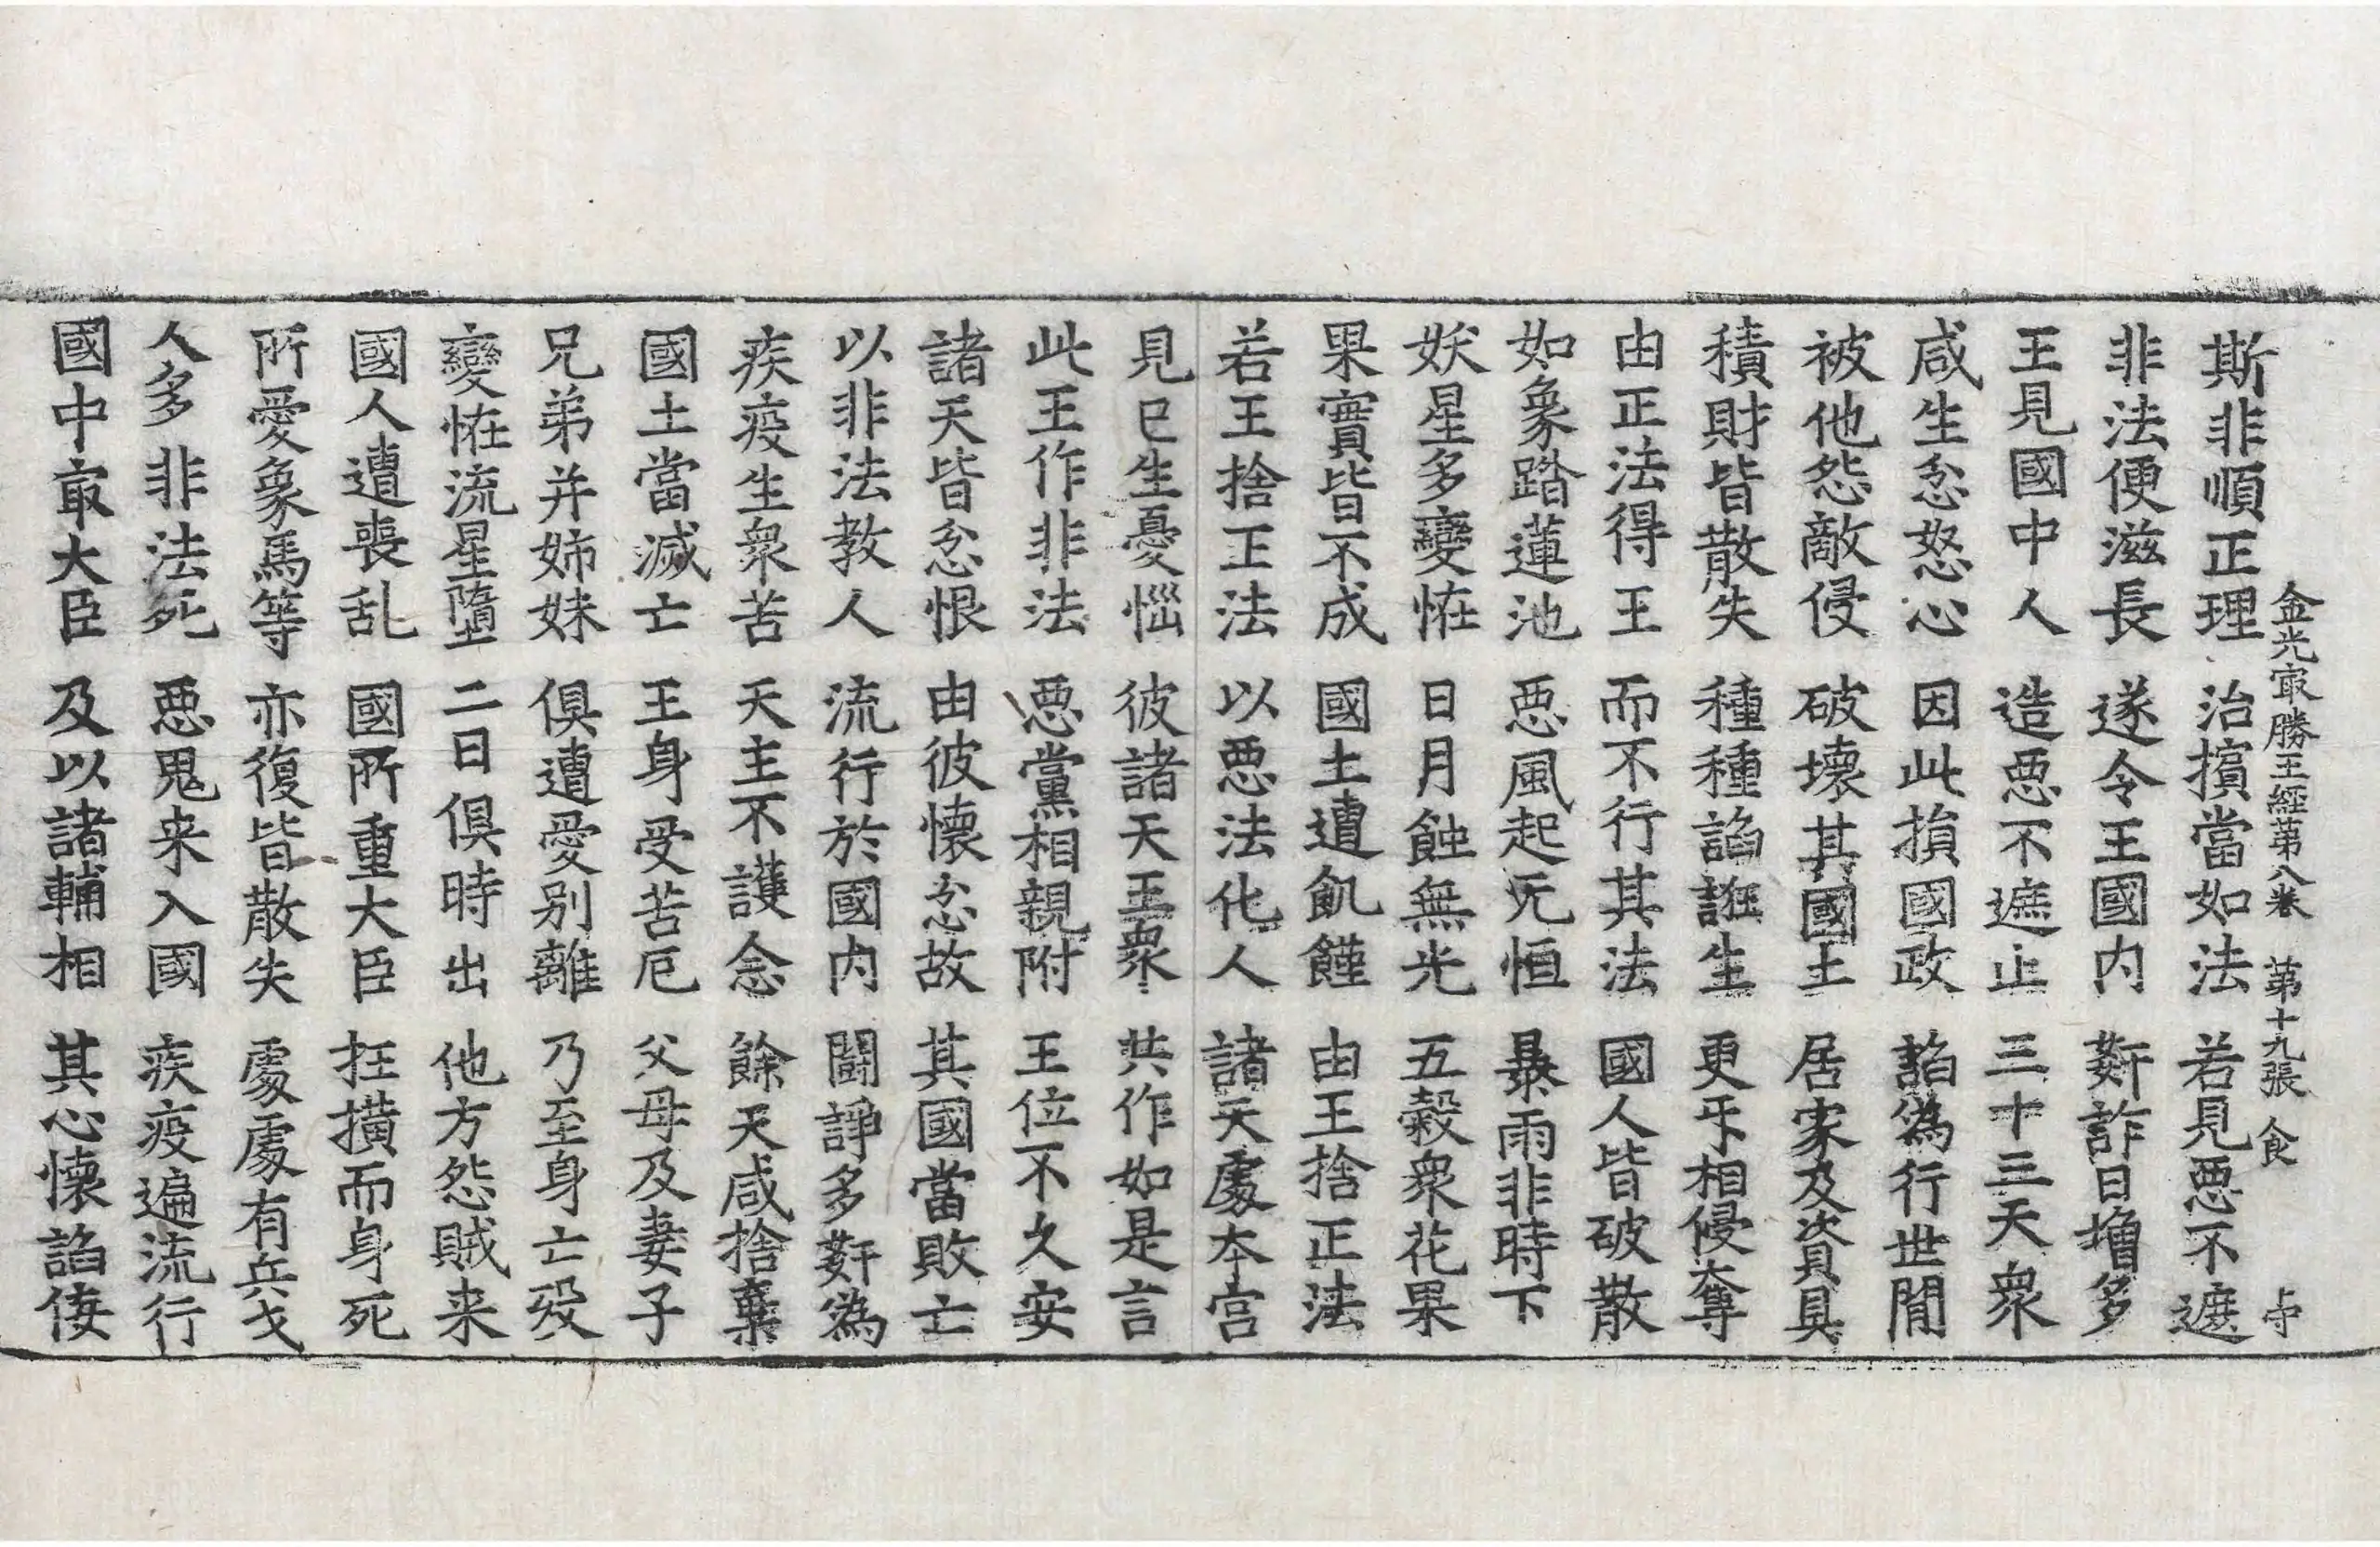 金光㝡勝王經第八卷　第十九張　食
斯非順正理　治擯當如法　若見惡不遮
非法便滋長　遂令王國内　姧詐日增多
王見國中人　造惡不遮止　三十三天衆
咸生忿怒心　因此損國政　諂僞行世間
被他怨敵侵　破壞其國土　居家及資具
積財皆散失　種種諂誑生　更㸦相侵奪
由正法得王　而不行其法　國人皆破散
如象踏蓮池　惡風起无恒　暴雨非時下
妖星多變恠　日月蝕無光　五穀衆花果
果實皆不成　國土遭飢饉　由王捨正法
若王捨正法　以惡法化人　諸天處本宮
見已生憂惱　彼諸天王衆　共作如是言
此王作非法　惡黨相親附　王位不久安
諸天皆忿恨　由彼懷忿故　其國當敗亡
以非法教人　流行於國内　鬪諍多姧僞
疾疫生衆苦　天主不護念　餘天咸捨棄
國土當滅亡　王身受苦厄　父母及妻子
兄弟并姉妹　俱遭愛别離　乃至身亡歿
變恠流星墮　二日俱時出　他方怨賊来
國人遭喪乱　國所重大臣　抂撗而身死
所愛象馬等　亦復皆散失　處處有兵戈
人多非法死　惡鬼来入國　疾疫遍流行
國中㝡大臣　及以諸輔相　其心懷諂佞